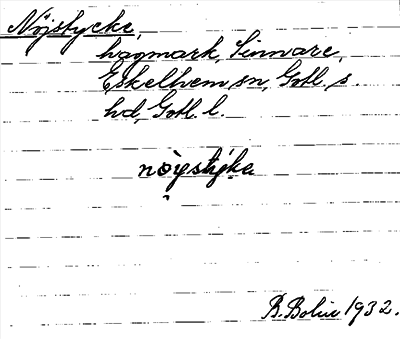 Nöjstycke,
hagmark, Sinnare,
Eskelhem sn, Gotl. s.
hd, Gotl. l.
nòystyke
B. Bolin 1932.